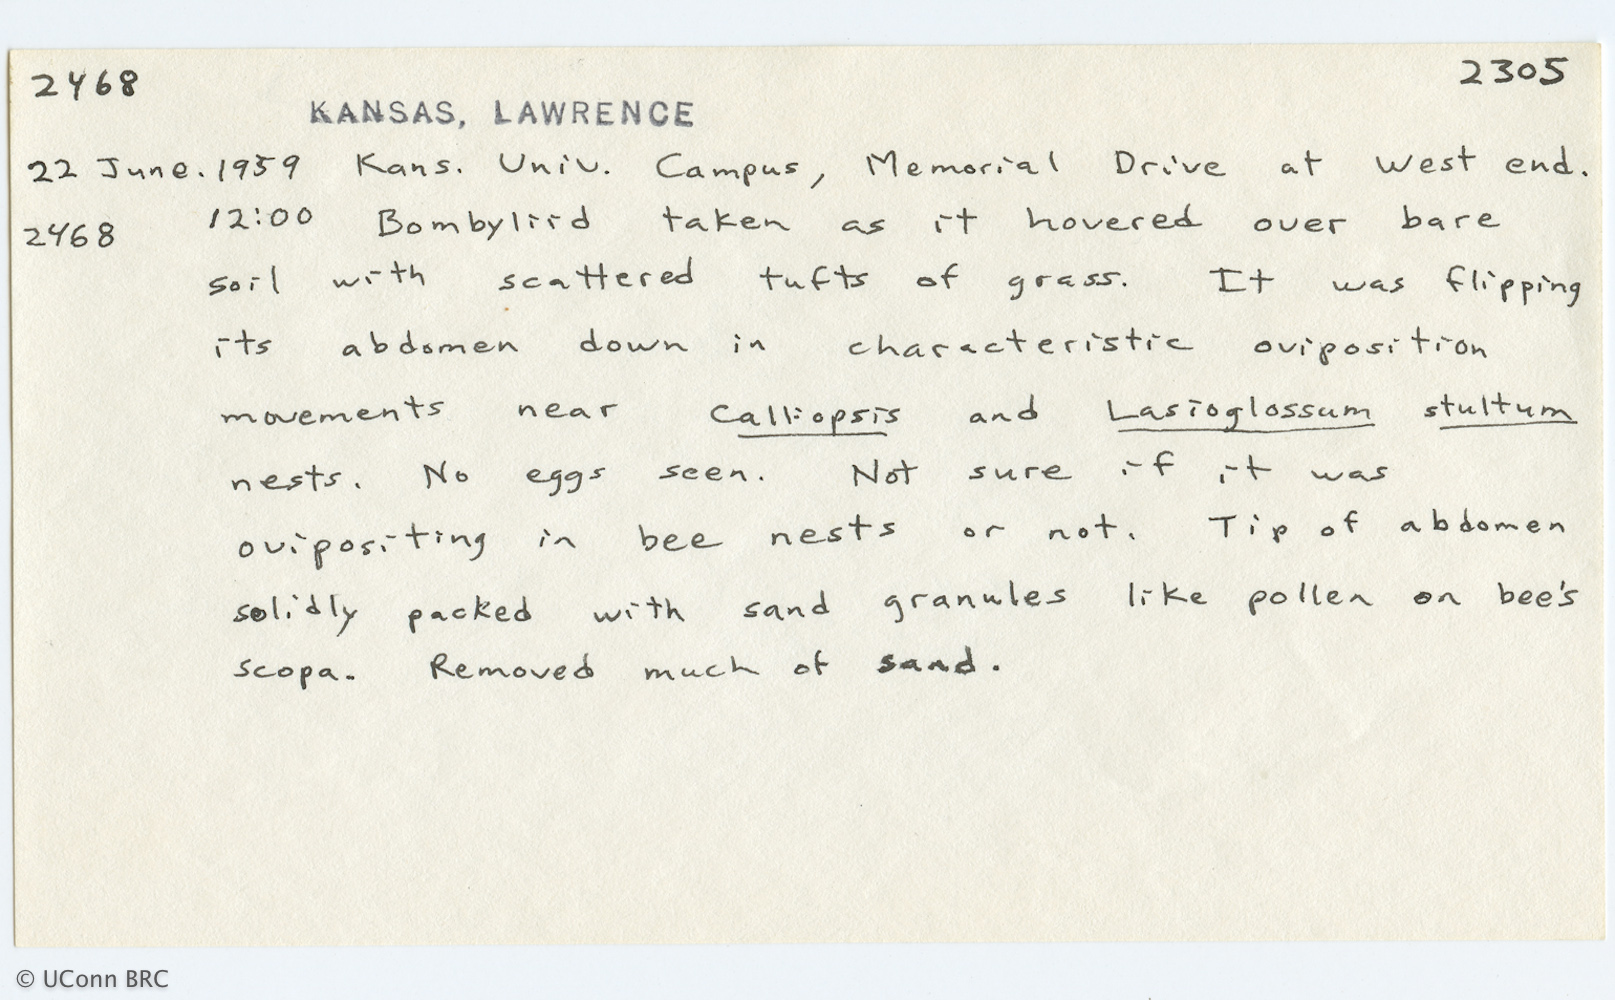 2468 2305
KANSAS, LAWRENCE
22 June. 1959 Kans. Univ. Campus, Memorial Drive at west end.
2468 12:00 Bombyliid taken as it hovered over bare
soil with scattered tufts of grass. It was flipping
its abdomen down in characteristic oviposition
movements near Calliopsis and Lasioglossum stultum
nests. No eggs seen. Not sure if it was
ovipositing in bee nests or not. Tip of abdomen
solidly packed with sand granules like pollen on bee's
scopa. Removed much of sand.
© UConn BRC